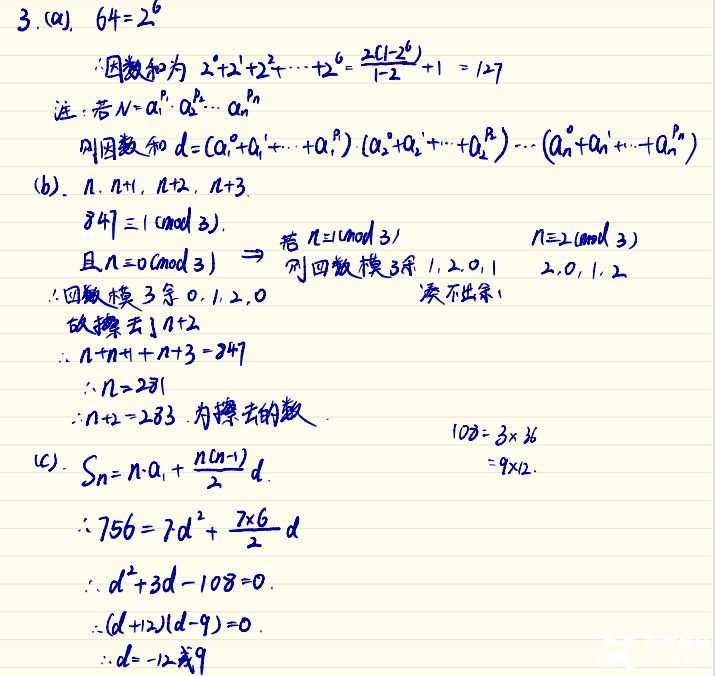 3.(a). 64=2^6
∴因数和为 2^0+2^1+2^2+…+2^6=\frac{2(1-2^6)}{1-2}+1 =127
注:若N=a_1^{P_1}·a_2^{P_2}…a_n^{P_n}
则因数和 d=(a_1^0+a_1^1+…+a_1^{P_1})·(a_2^0+a_2^1+…+a_2^{P_2})…(a_n^0+a_n^1+…+a_n^{P_n})
(b). n, n+1, n+2, n+3.
847≡1(mod 3).
且n≡0(mod 3) ⇒ 若 n≡1(mod 3) n≡2(mod 3)
则四数模3余 1,2,0,1 2,0,1,2
∴四数模3余 0,1,2,0 凑不出余1
故擦去了n+2
∴ n+n+1+n+3=847
∴n=281
∴n+2=283 为擦去的数.
108=3×36
=9×12.
(c). S_n=n·a_1+\frac{n(n-1)}{2}d.
∴756=7·d^2+\frac{7×6}{2}d
∴d^2+3d-108=0.
∴(d+12)(d-9)=0.
∴d=-12或9